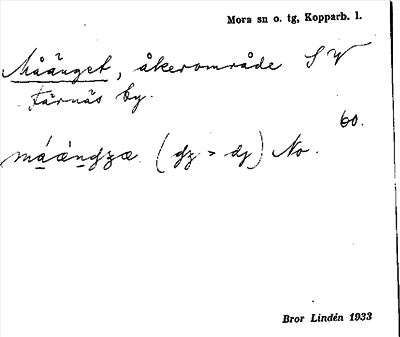 Mora sn o. tg, Kopparb. l.
Måänget, åkerområde S V
Färnäs by.
60.
máángzæ (gz > dj) No.
Bror Lindén 1933